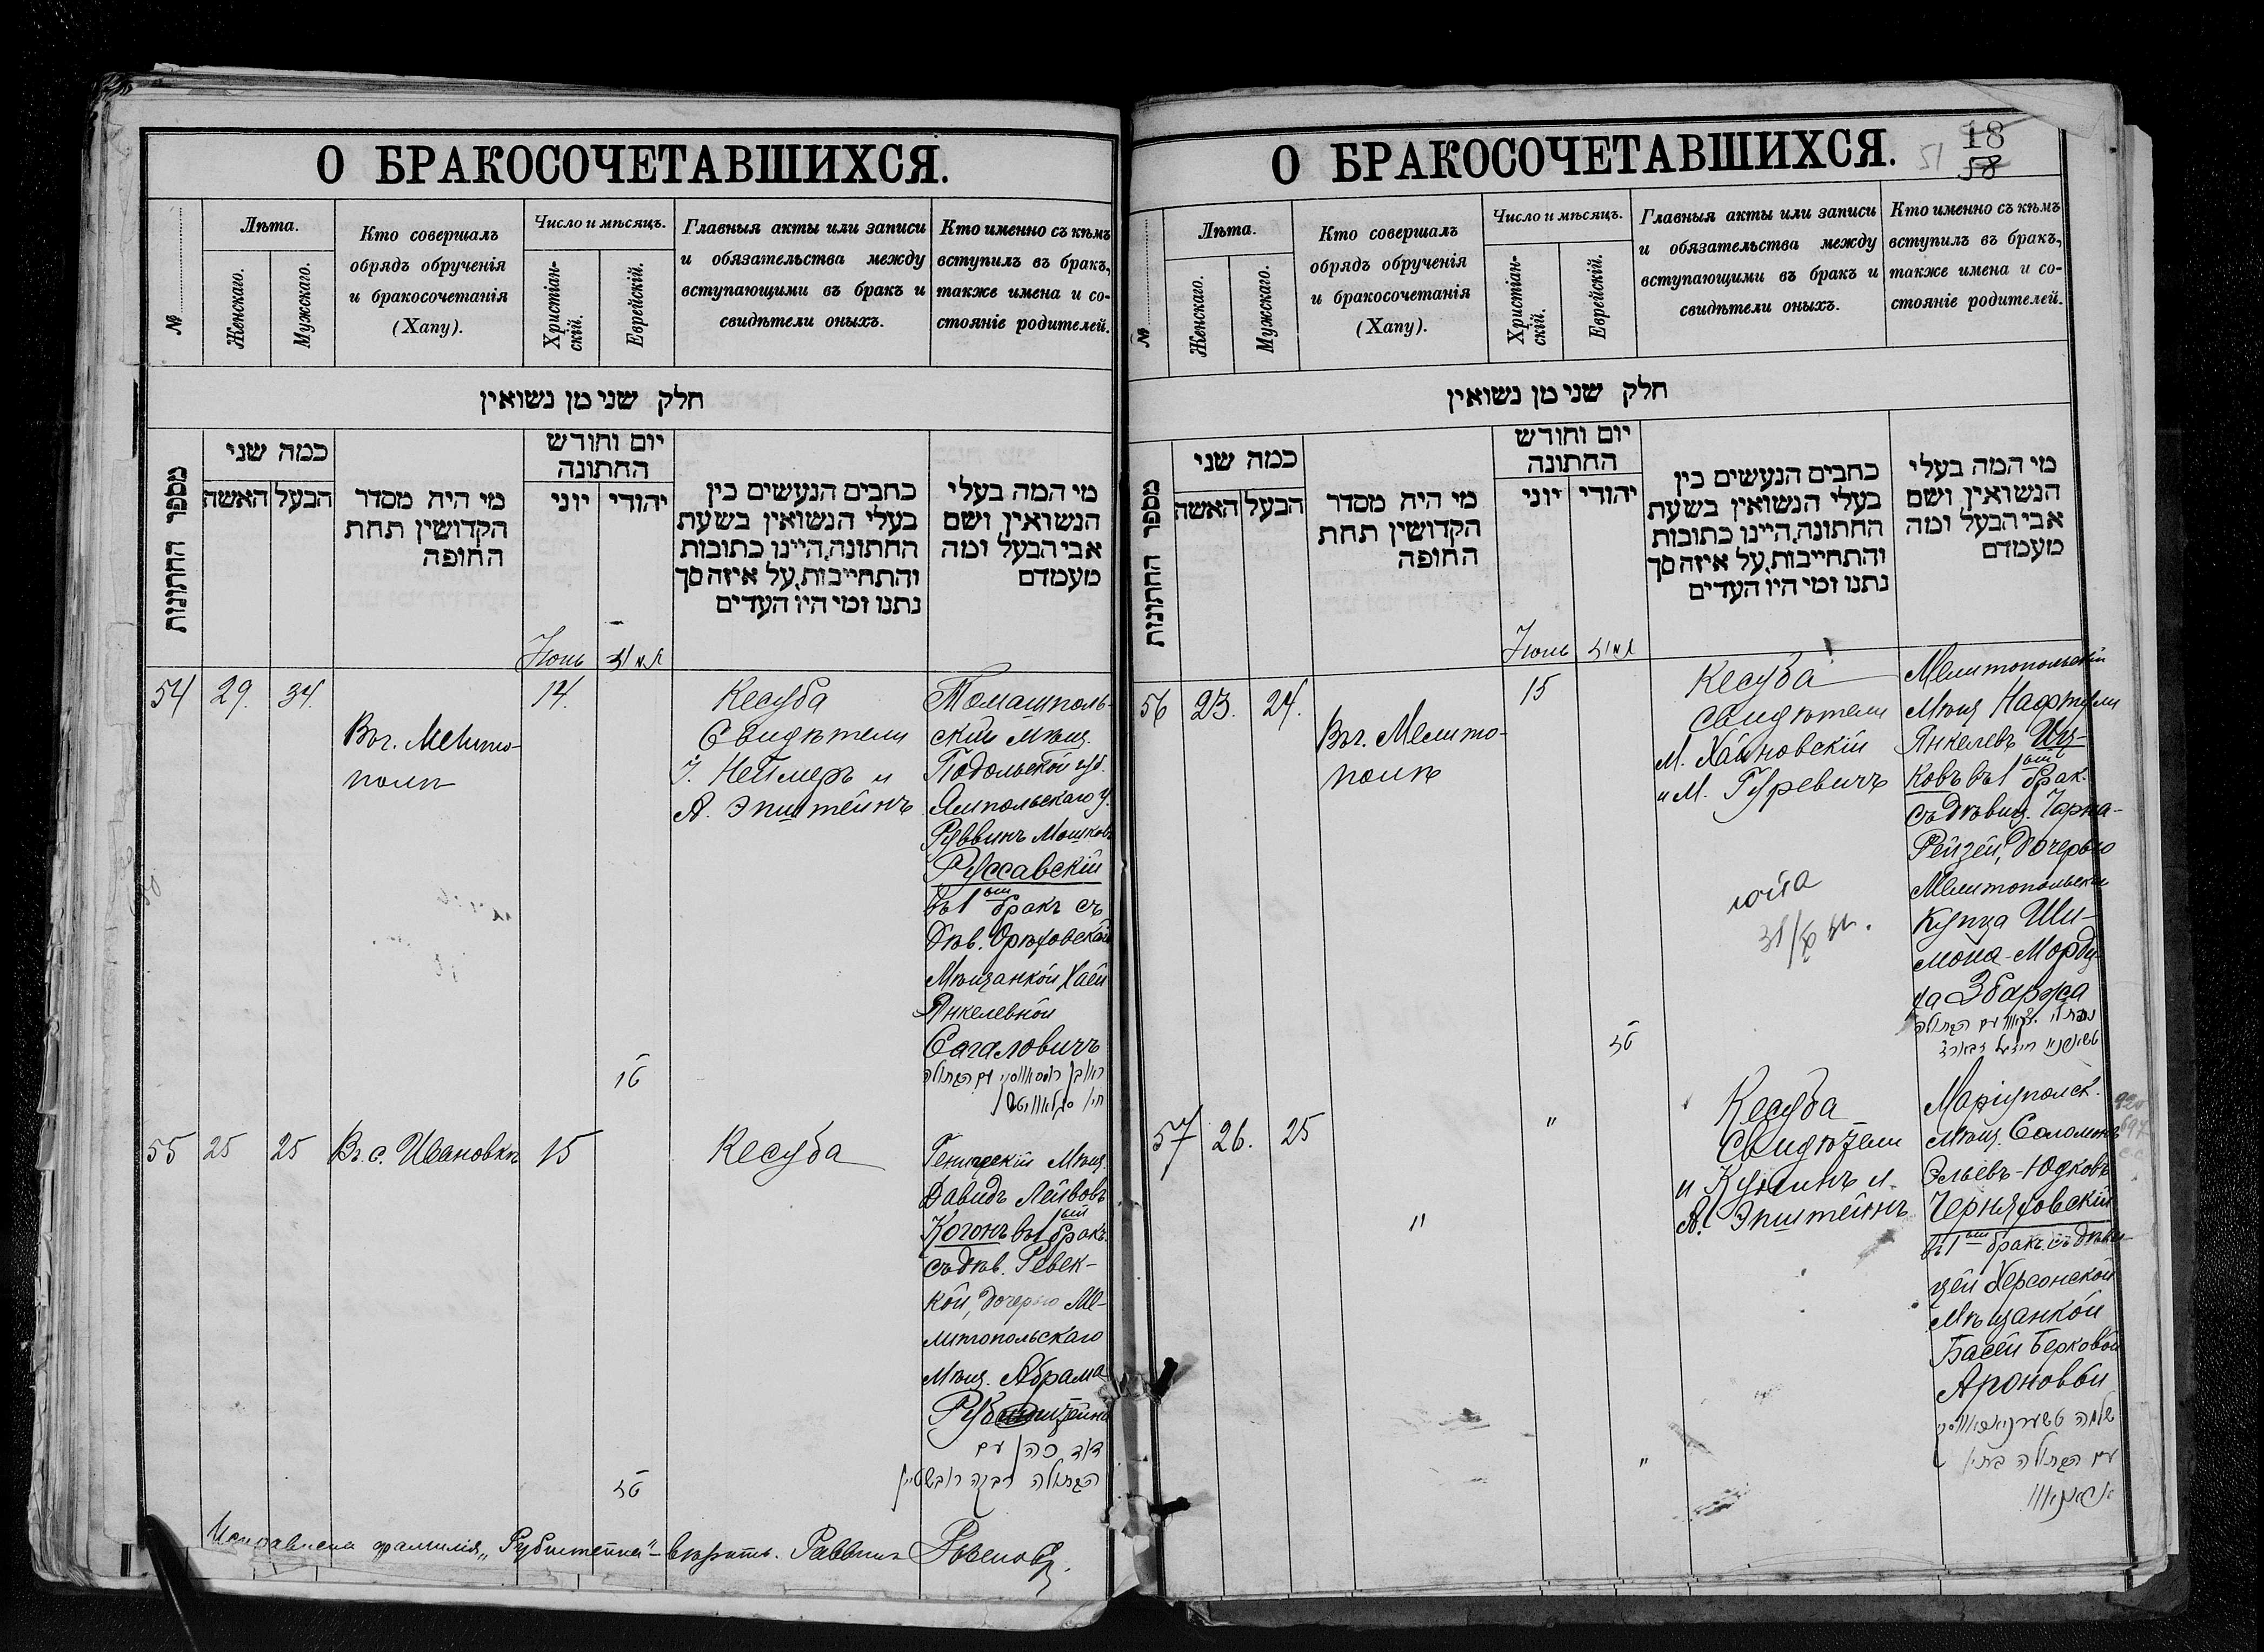 О БРАКОСОЧЕТАВШИХСЯ.
№
Лѣта.
Женскаго.
Мужскаго.
Кто совершалъ
обрядъ обрученія
и бракосочетанія
(Хапу).
Число и мѣсяцъ.
Христіан-
скій.
Еврейскій.
Главныя акты или записи
и обязательства между
вступающими въ бракъ и
свидѣтели оныхъ.
Кто именно съ кѣмъ
вступилъ въ бракъ,
также имена и со-
стояніе родителей.
חלק שני מן נשואין
מספר החתונות
כמה שני
האשה
הבעל
מי היה מסדר
הקדושין תחת
החופה
יום וחודש
החתונה
יוני
יהודי
כתבים הנעשים בין
בעלי הנשואין בשעת
החתונה, היינו כתובות
והתחייבות, על איזה סך
נתנו ומי היו העדים
מי המה בעלי
הנשואין ושם
אבי הבעל ומה
מעמדם
Іюнь
54
29.
34.
Въ г. Мелито-
полѣ
14.
Кесуба
Свидѣтели
и
А. Эпштейнъ
Томашполь-
скій мѣщ.
Подольской губ.
Ямпольскаго у.
Рувинъ Мошковъ
Руссавскій
въ 1ый бракъ съ
дѣв. Орѣховской
Мѣщанкой Хаей
Янкелевной
Сагаловичъ
עם הבתולה
55
25
25
Въ с. Ивановкѣ
15
Кесуба
Геническій Мѣщ.
Давидъ Лейбовъ
Когонъ въ 1ый бракъ
съ дѣв. Ревек-
кой, дочерью Ме-
литопольскаго
Мѣщ. Абрама
Рубинштейна
דוד כהן עם
הבתולה רבקה רובשטיין
Исправлена фамилія „Рубштейна" – вѣрить. Раввинъ
О БРАКОСОЧЕТАВШИХСЯ.
51
18
58
№
Лѣта.
Женскаго.
Мужскаго.
Кто совершалъ
обрядъ обрученія
и бракосочетанія
(Хапу).
Число и мѣсяцъ.
Христіан-
скій.
Еврейскій.
Главныя акты или записи
и обязательства между
вступающими въ бракъ и
свидѣтели оныхъ.
Кто именно съ кѣмъ
вступилъ въ бракъ,
также имена и со-
стояніе родителей.
חלק שני מן נשואין
מספר החתונות
כמה שני
האשה
הבעל
מי היה מסדר
הקדושין תחת
החופה
יום וחודש
החתונה
יוני
יהודי
כתבים הנעשים בין
בעלי הנשואין בשעת
החתונה, היינו כתובות
והתחייבות, על איזה סך
נתנו ומי היו העדים
מי המה בעלי
הנשואין ושם
אבי הבעל ומה
מעמדם
Іюнь
56
23.
24.
Въ г. Мелито-
полѣ
15
Кесуба
Свидѣтели
М. Хайновскій
и М. Гуревичъ
Мелитопольскій
Мѣщ Нафтули
Янкелевъ Иц-
ковъ въ 1ый брак.
съ дѣвиц. Чарна-
Рейзей, дочерью
Мелитопольск.
Купца Ши-
мона-Морду-
ха Збаржа
עם הבתולה
57
26.
25
"
"
Кесуба
Свидѣтели
А. Эпштейнъ
Маріупольск.
Мѣщ. Соломонъ
Эльевъ-Юдковъ
Черняховскій
въ 1ый бракъ съ дѣви-
цей Херсонской
Мѣщанкой
Басей Берковой
Ароновой
שלמה
עם הבתולה
"